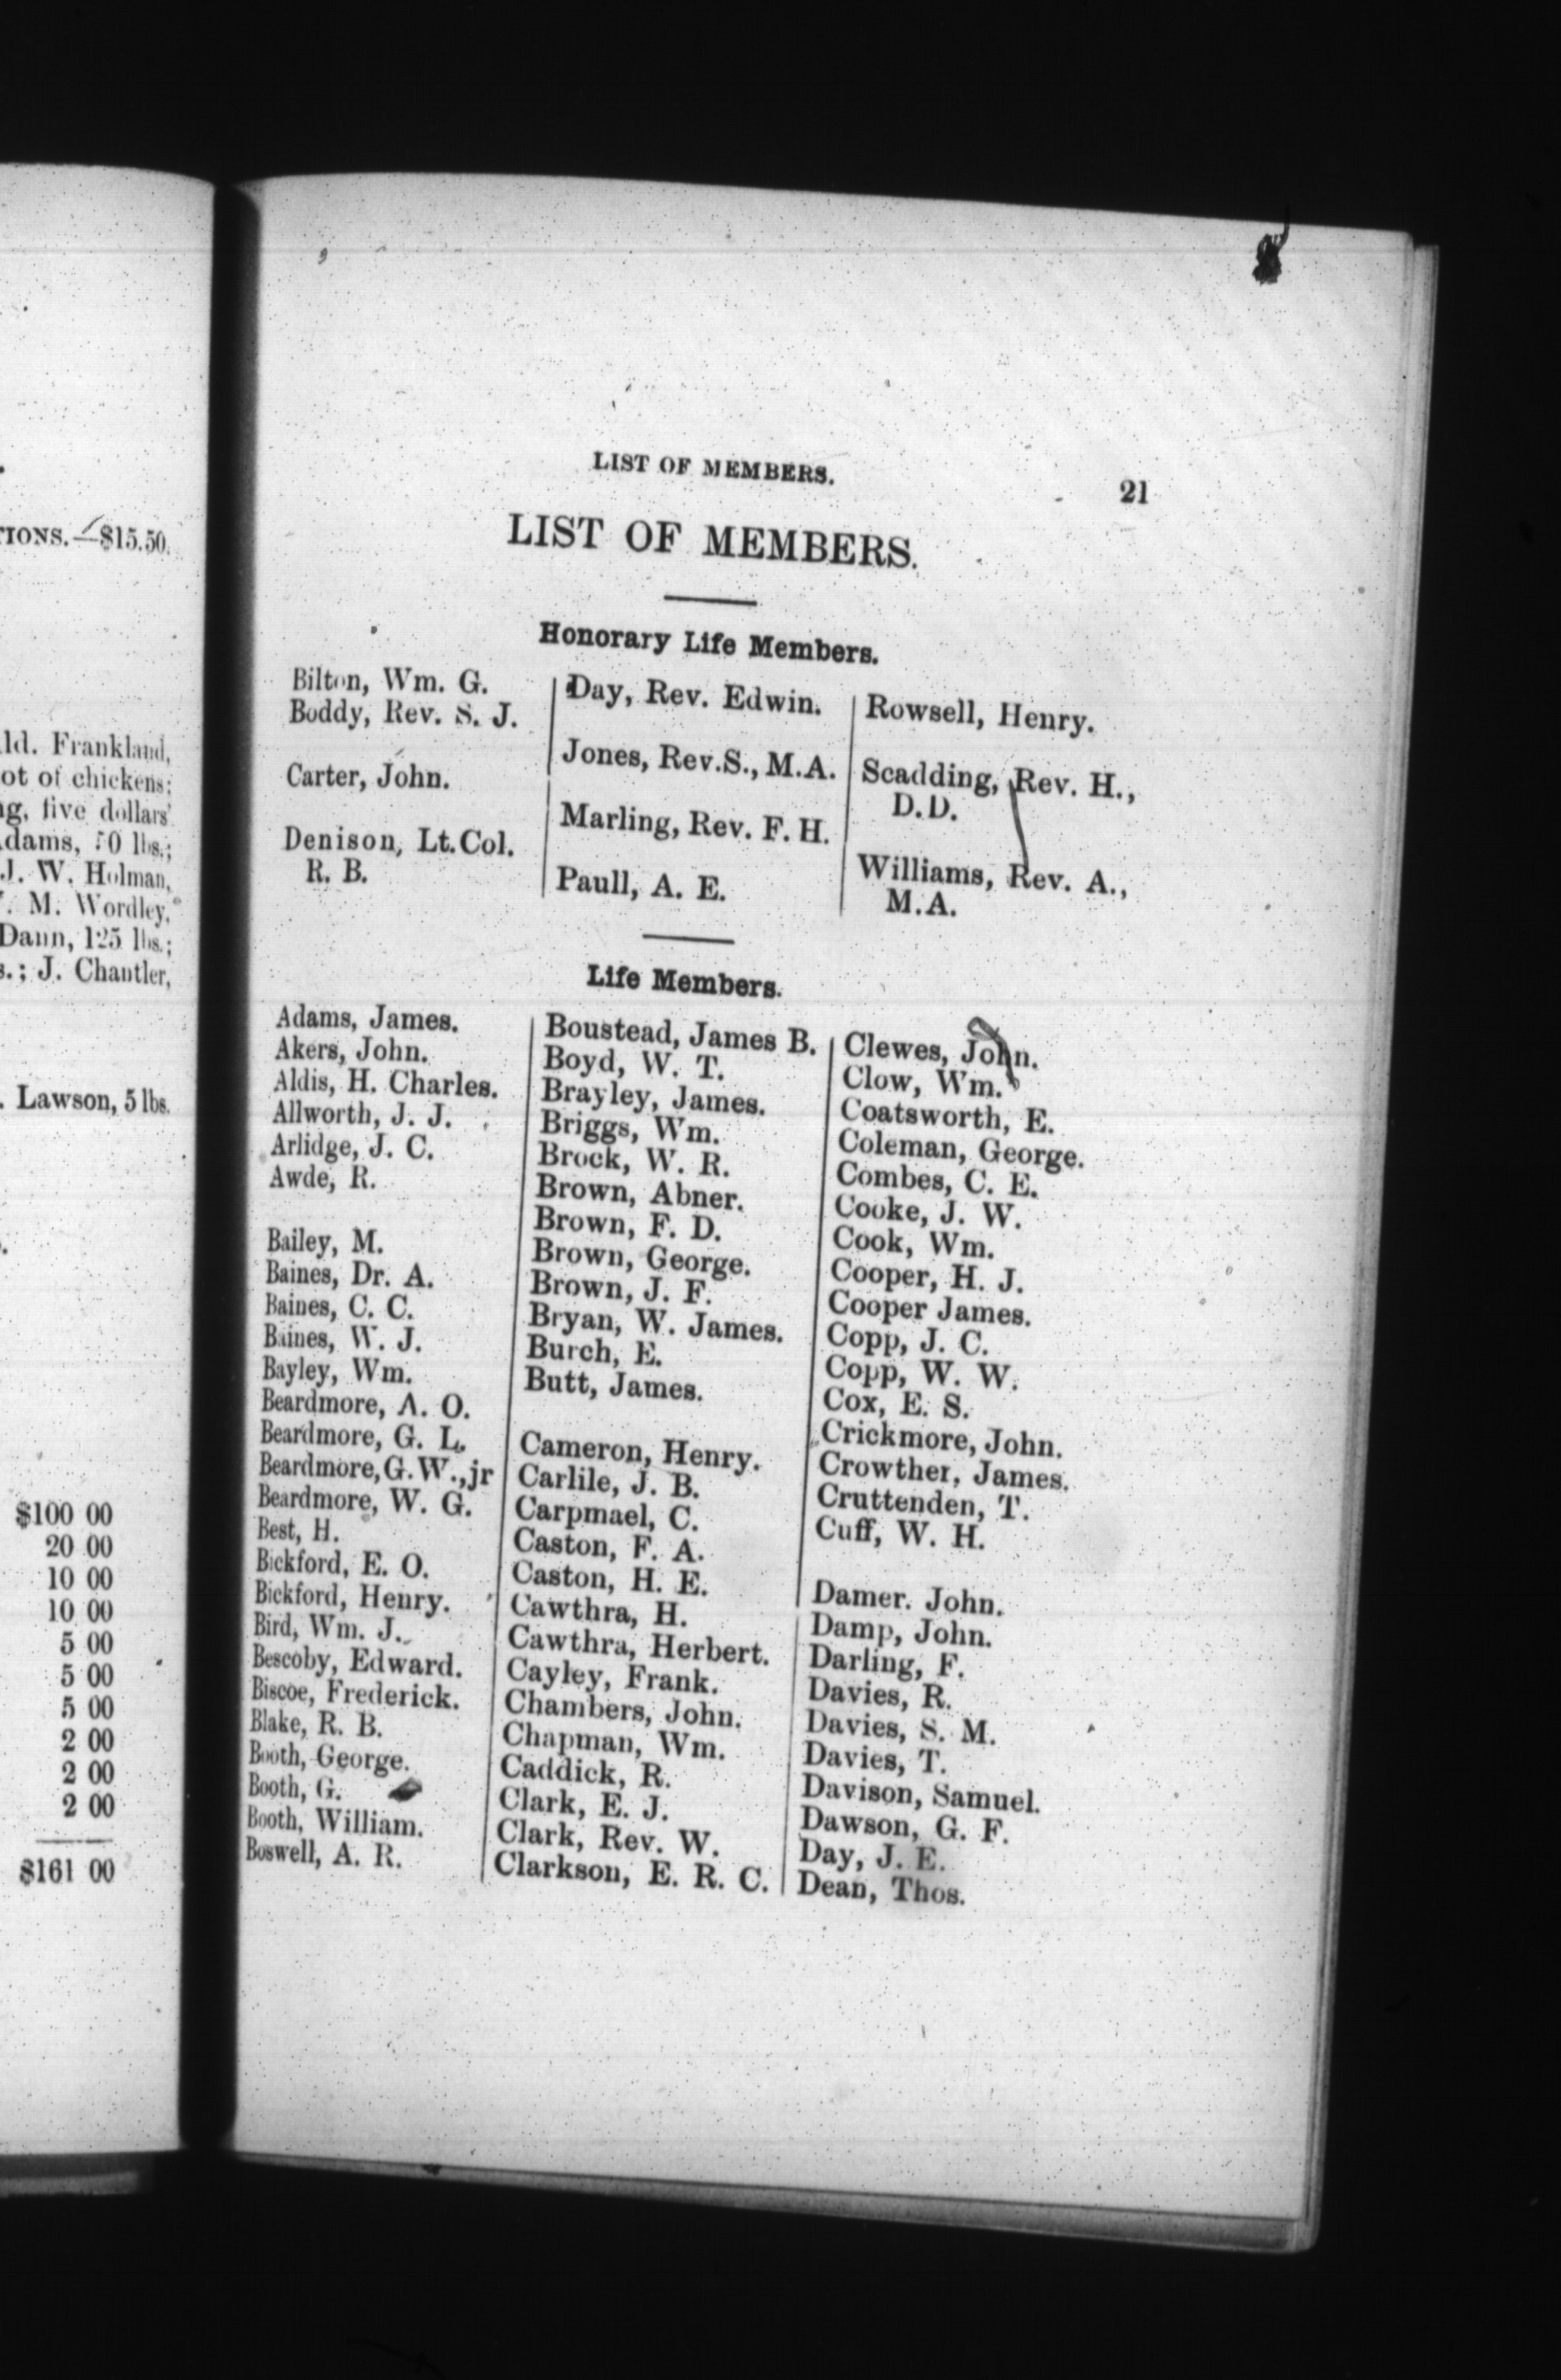 TIONS.—$15.50.
ld. Frankland,
ot of chickens;
g, five dollars'
dams, 50 lbs.;
J. W. Holman,
. M. Wordley,
Dann, 125 lbs.;
s.; J. Chantler,
. Lawson, 5 lbs.
$100 00
20 00
10 00
10 00
5 00
5 00
5 00
2 00
2 00
2 00
$161 00
LIST OF MEMBERS.
21
LIST OF MEMBERS.
Honorary Life Members.
Bilton, Wm. G.
Boddy, Rev. S. J.
Carter, John.
Denison, Lt.Col.
R. B.
Day, Rev. Edwin.
Jones, Rev.S., M.A.
Marling, Rev. F. H.
Paull, A. E.
Rowsell, Henry.
Scadding, Rev. H.,
D.D.
Williams, Rev. A.,
M.A.
Life Members.
Adams, James.
Akers, John.
Aldis, H. Charles.
Allworth, J. J.
Arlidge, J. C.
Awde, R.
Bailey, M.
Baines, Dr. A.
Baines, C. C.
Baines, W. J.
Bayley, Wm.
Beardmore, A. O.
Beardmore, G. L.
Beardmore,G.W.,jr
Beardmore, W. G.
Best, H.
Bickford, E. O.
Bickford, Henry.
Bird, Wm. J.
Bescoby, Edward.
Biscoe, Frederick.
Blake, R. B.
Booth, George.
Booth, G.
Booth, William.
Boswell, A. R.
Boustead, James B.
Boyd, W. T.
Brayley, James.
Briggs, Wm.
Brock, W. R.
Brown, Abner.
Brown, F. D.
Brown, George.
Brown, J. F.
Bryan, W. James.
Burch, E.
Butt, James.
Cameron, Henry.
Carlile, J. B.
Carpmael, C.
Caston, F. A.
Caston, H. E.
Cawthra, H.
Cawthra, Herbert.
Cayley, Frank.
Chambers, John.
Chapman, Wm.
Caddick, R.
Clark, E. J.
Clark, Rev. W.
Clarkson, E. R. C.
Clewes, John.
Clow, Wm.
Coatsworth, E.
Coleman, George.
Combes, C. E.
Cooke, J. W.
Cook, Wm.
Cooper, H. J.
Cooper James.
Copp, J. C.
Copp, W. W.
Cox, E. S.
Crickmore, John.
Crowther, James.
Cruttenden, T.
Cuff, W. H.
Damer. John.
Damp, John.
Darling, F.
Davies, R.
Davies, S. M.
Davies, T.
Davison, Samuel.
Dawson, G. F.
Day, J. E.
Dean, Thos.